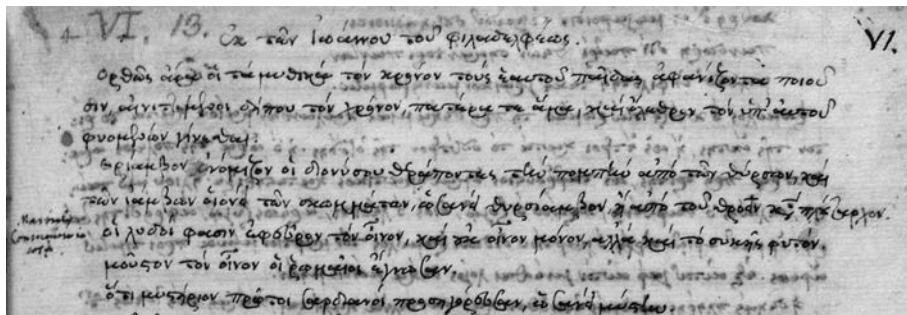 + VI. 13. Ἐκ τῶν Ἰωάννου τοῦ φιλαδελφέως. VI.
ὀρθῶς ἄρα οἱ τὰ μυθικὰ τὸν κρόνον τοὺς ἑαυτοῦ παῖδας ἀφανίζοντα ποιοῦ
σιν, αἰνιττόμενοι τὸν χρόνον, πατέρα τε ἅμα, καὶ ὄλεθρον τῶν ὑπ' αὐτοῦ
φυομένων γίνεσθαι.
θρίαμβον ἐνόμιζον οἱ διονύσου θεράποντες τὴν πομπὴν ἀπὸ τῶν θύρσων, καὶ
τῶν ἰάμβων οἱονεὶ τῶν σκωμμάτων, ὡσανεὶ θυρσίαμβον, ἢ ἀπὸ τοῦ
οἱ λυδοί φασιν τὸν οἶνον, καὶ οὐκ οἶνον μόνον, ἀλλὰ καὶ τὸ συκῆς φυτόν.
μοῦστον τὸν οἶνον οἱ ῥωμαῖοι
ὅτι μυστήριον πρῶτοι σαρδιανοὶ προσηγόρευσαν, ὡσανεὶ